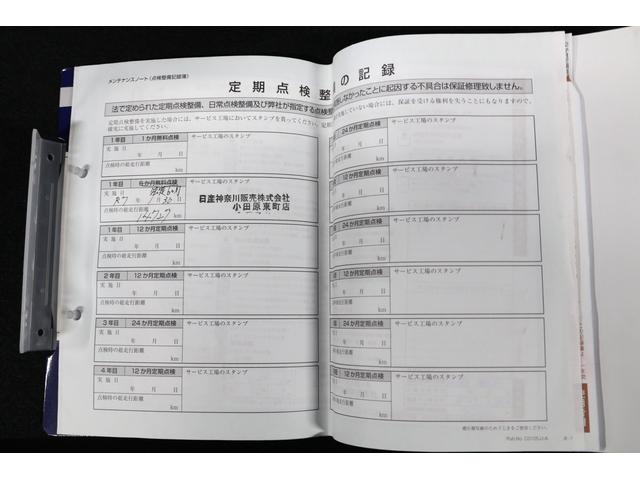 メンテナンスノート（点検整備記録簿）
定期点検整
の記録
法で定められた定期点検整備、日常点検整備及び弊社が指定する点検整
しなかったことに起因する不具合は保証修理致しません。
定期点検整備を実施した場合には、サービス工場においてスタンプを貰ってください。
していない場合には、保証を受ける権利を失うことにもなりますので、
確実に実施してください。
1年目 1か月無料点検
サービス工場のスタンプ
実施日
年 月 日
点検時の総走行距離
km
1年目 6か月無料点検
サービス工場のスタンプ
実施日
R7年 11月 30日
点検時の総走行距離
km
日産神奈川販売株式会社
小田原東町店
1年目 12か月定期点検
サービス工場のスタンプ
実施日
年 月 日
点検時の総走行距離
km
2年目 12か月定期点検
サービス工場のスタンプ
実施日
年 月 日
点検時の総走行距離
km
3年目 24か月定期点検
サービス工場のスタンプ
実施日
年 月 日
点検時の総走行距離
km
4年目 12か月定期点検
サービス工場のスタンプ
実施日
年 月 日
点検時の総走行距離
km
24か月定期点検
サービス工場のスタンプ
年 月 日
km
12か月定期点検
サービス工場のスタンプ
年 月 日
km
24か月定期点検
サービス工場のスタンプ
年 月 日
km
12か月定期点検
サービス工場のスタンプ
年 月 日
km
24か月定期点検
サービス工場のスタンプ
年 月 日
km
12か月定期点検
サービス工場のスタンプ
年 月 日
km